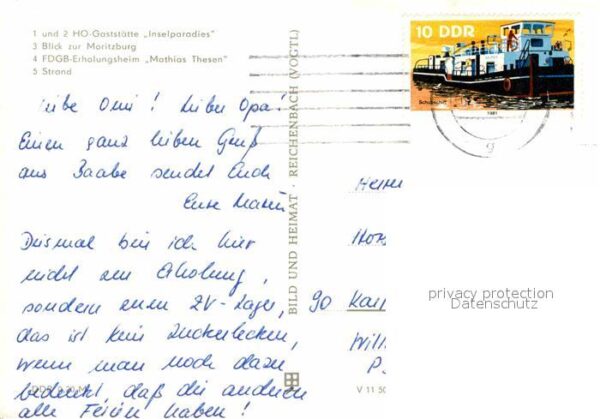 1 und 2 HO-Gaststätte „Inselparadies"
3 Blick zur Moritzburg
4 FDGB-Erholungsheim „Mathias Thesen"
5 Strand
Liebe Omi! Lieber Opa!
Einen ganz lieben Gruß
aus Baabe sendet Euch
Eure
Diesmal bin ich hier
nicht zur Erholung,
sondern zum ZV-Lager,
das ist kein Zuckerlecken,
wenn man noch dazu
bedenkt, daß die anderen
alle Ferien haben!
BILD UND HEIMAT REICHENBACH (VOGTL)
10 DDR
Schubschiff
1981
90
privacy protection
Datenschutz
V 11 50